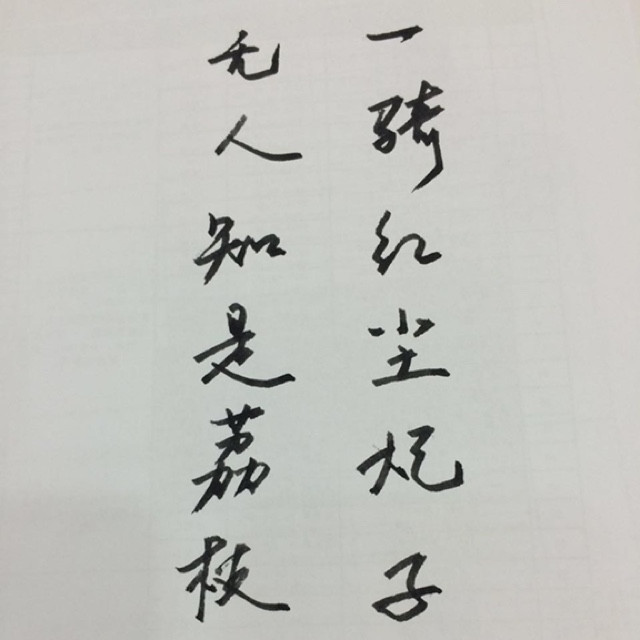 一骑红尘妃子
无人知是荔枝